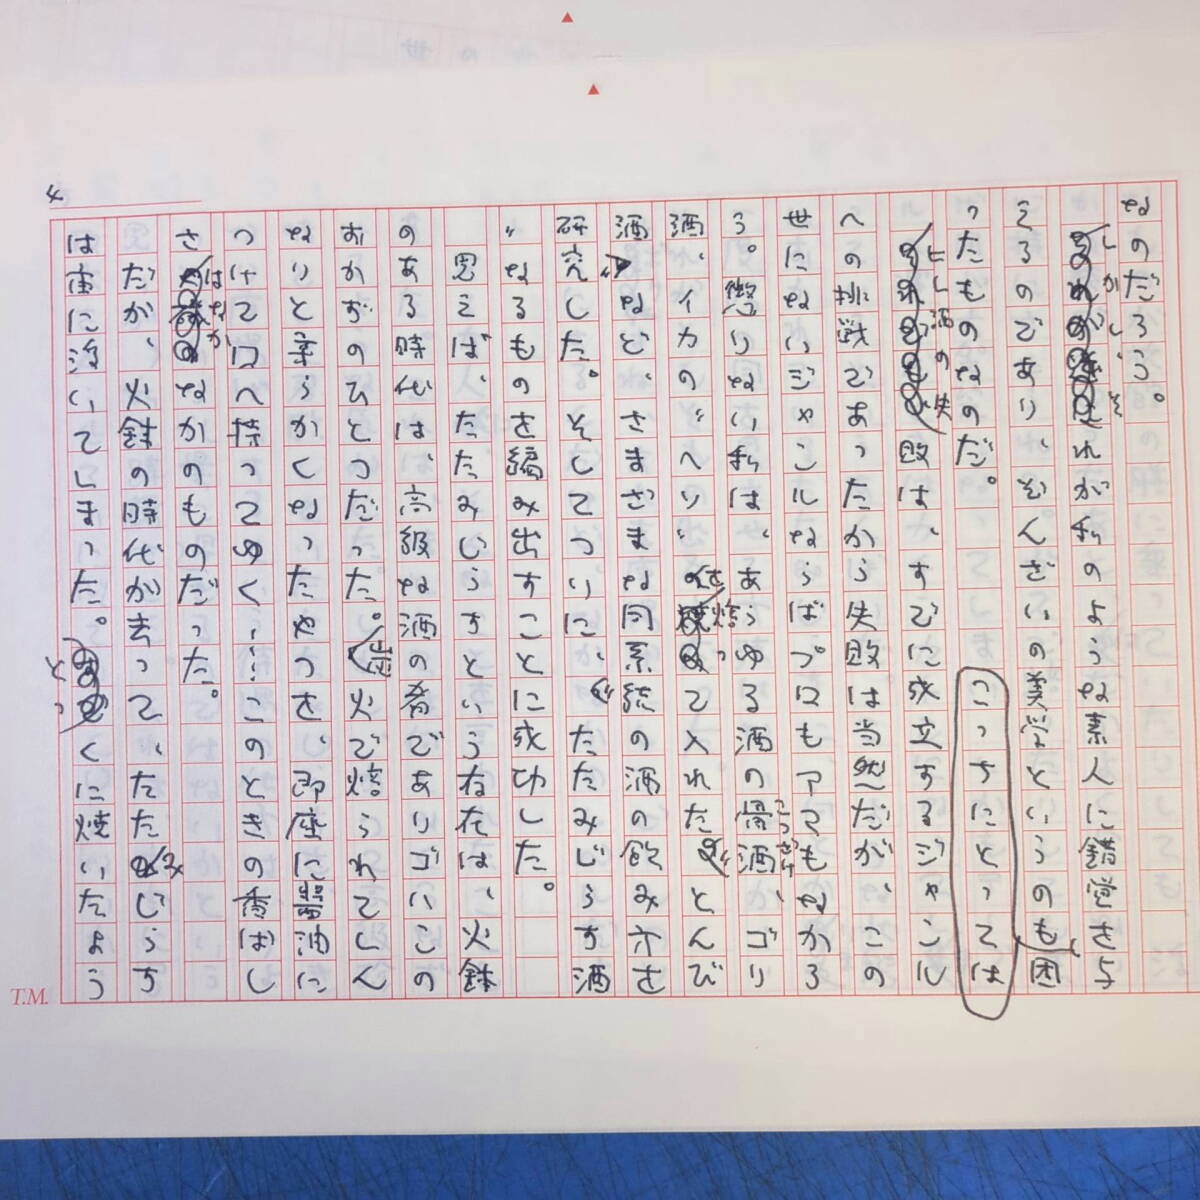 4
なのだろう。
しかし、それが私のような素人に錯覚さ与
えるのであり、ぞんざいの美学というのも困
ったものなのだ。こっちにとっては
ヒレ酒の失敗は、すでに成立するジャンル
への挑戦であったから失敗は当然だが、この
世にないジャンルならばプロもアマもなかろ
う。懲りない私は、あらゆる酒の骨酒、ゴリ
こつざけ
酒、イカの〝へり〟を焙って入れた〝とんび
酒〟など、さまざまな同系統の酒の飲み方を
研究した。そしてついに、〝たたみじうち酒
〟なるものを編み出すことに成功した。
思えば、たたみいうちという存在は、火鉢
のある時代は、高級な酒の肴でありゴハンの
おかずのひとつだった。炭火で焙られてしん
なりと柔らかくなったやつを、即座に醤油に
つけて口へ持ってゆく……このときの香ばし
さはなかなかのものだった。
だが、火鉢の時代が去って、たたみじうち
は宙に浮いてしまった。とっくに焼いたよう
T.M.